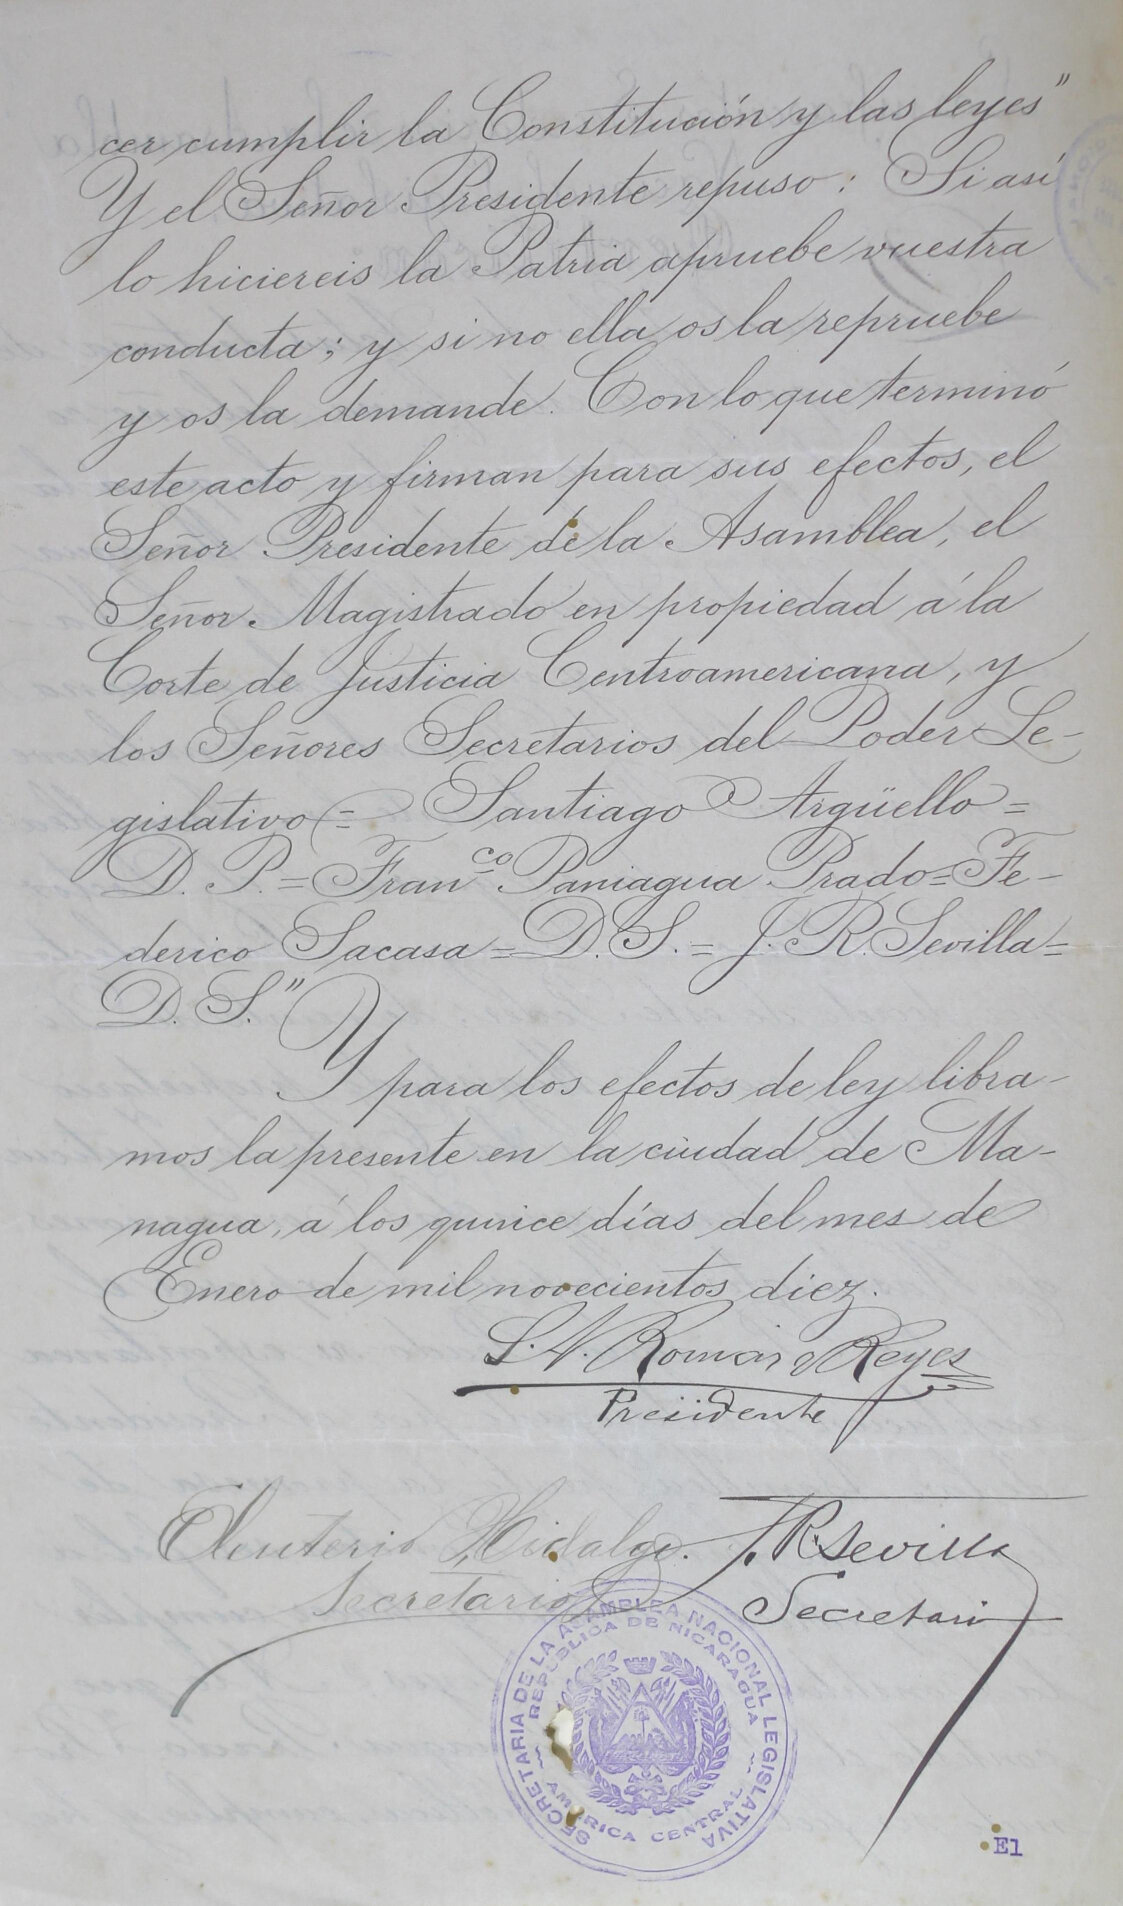 cer cumplir la Constitución y las leyes"
Y el Señor Presidente repuso: Si así
lo hiciereis la Patria apruebe vuestra
conducta; y si no ella os la repruebe
y os la demande. Con lo que terminó
este acto y firman para sus efectos, el
Señor Presidente de la Asamblea, el
Señor Magistrado en propiedad á la
Corte de Justicia Centroamericana, y
los Señores Secretarios del Poder Le-
gislativo = Santiago Argüello =
D. P. = Franco Paniagua Prado = Fe-
derico Sacasa = D. S. = J. R. Sevilla =
D. S."
Y para los efectos de ley libra-
mos la presente en la ciudad de Ma-
nagua, á los quince días del mes de
Enero de mil novecientos diez.
S. N. Román y Reyes
Presidente
Eleuterio Hidalgo. J. R. Sevilla
Secretario Secretario
SECRETARIA DE LA ASAMBLEA NACIONAL LEGISLATIVA
REPUBLICA DE NICARAGUA
AMERICA CENTRAL
E1